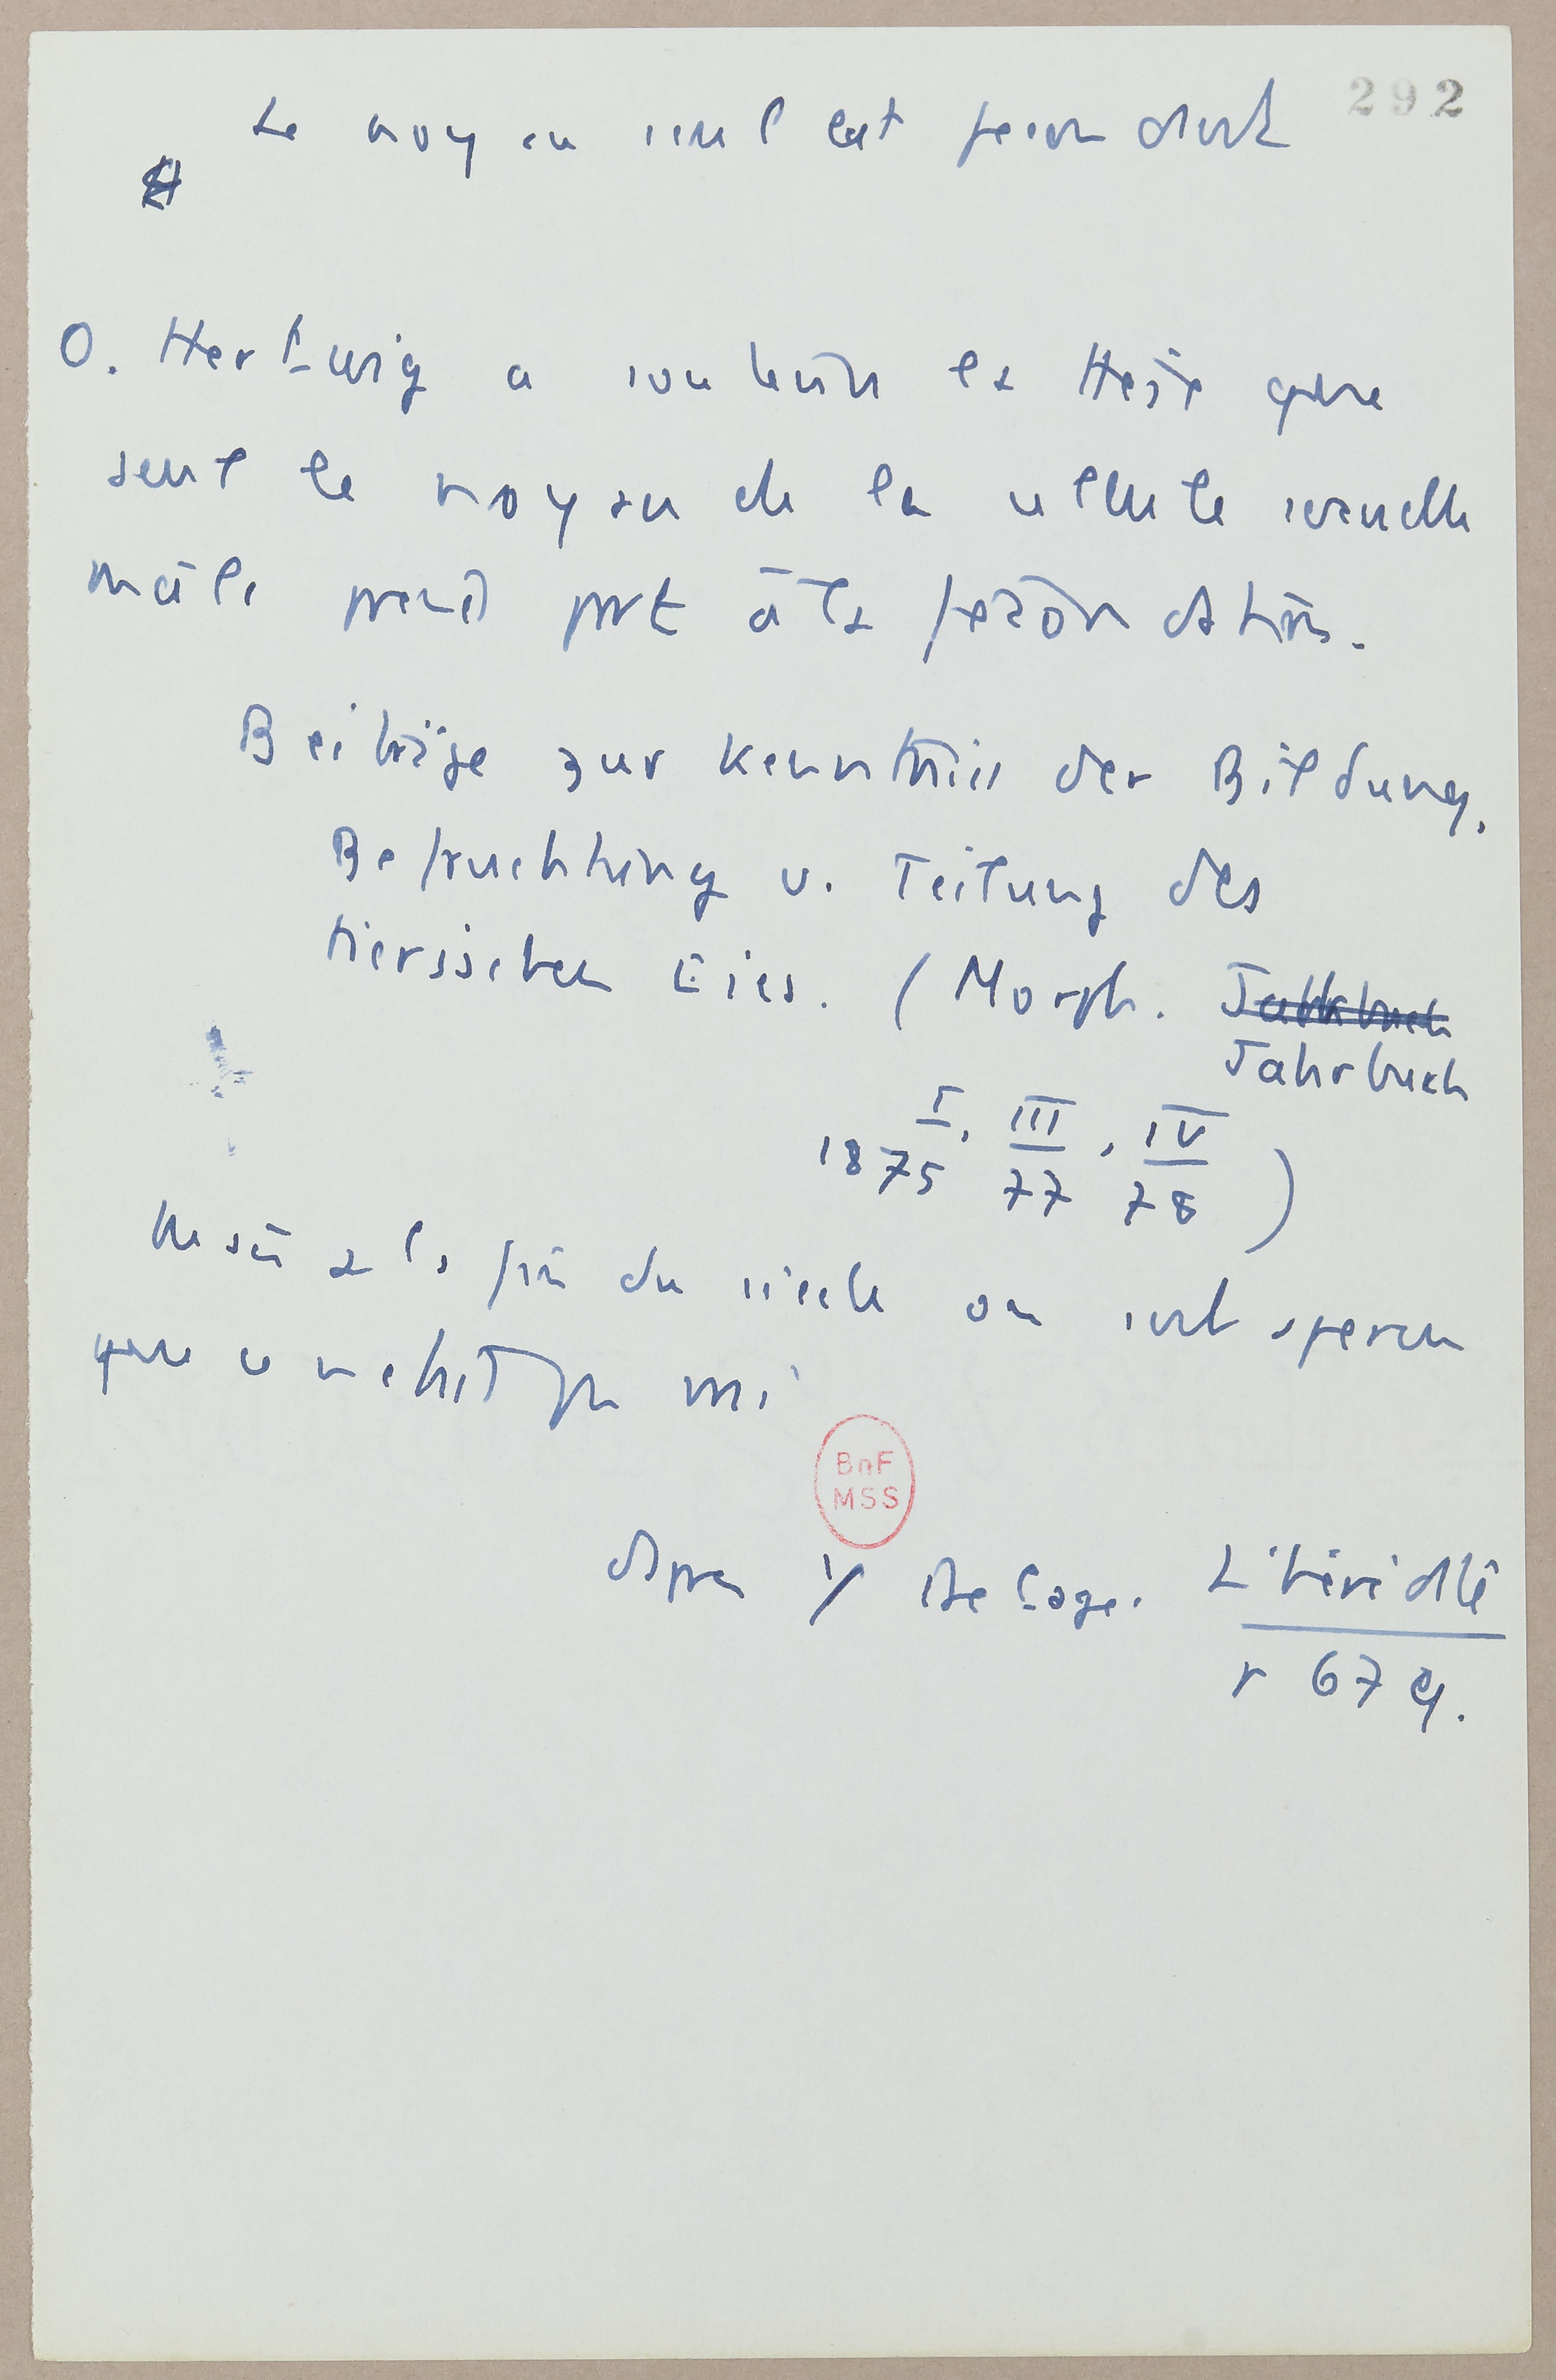 292
Le noyau seul est fecondant
O. Hertwig a soutenu la thèse que
seul le noyau de la cellule sexuelle
mâle prend part à la fécondation.
Beiträge zur Kenntniss der Bildung,
Befruchtung u. Teilung des
tierischen Eies. (Morph. Jahrbuch
Jahrbuch
I, III, IV
1875 77 78)
à la fin du siècle on s'est aperçu
que ce n'était pas vrai
BnF
MSS
d'apres Y Delage. L'hérédité
p 679.